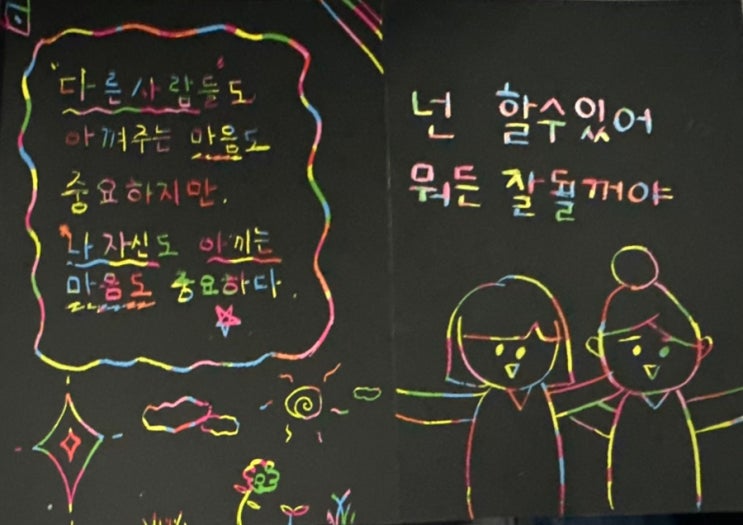 "다른사람들"도
아껴주는 마음도
중요하지만.
나 자신도 아끼는
마음도 중요하다.
넌 할수있어
뭐든 잘될꺼야